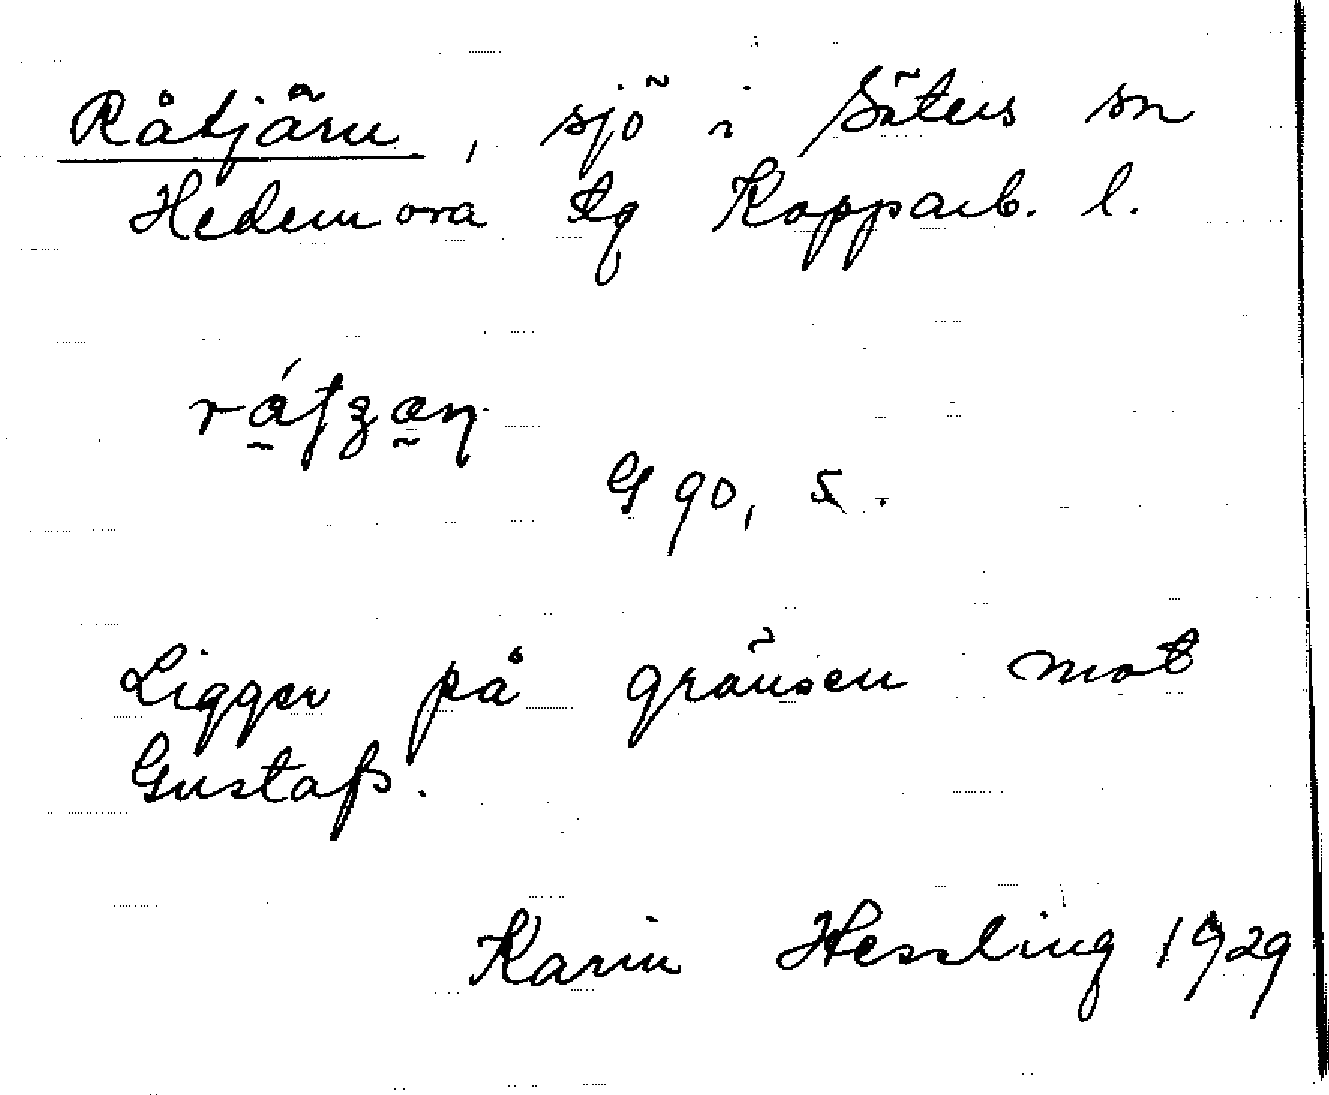 Råtjärn, sjö i Säters sn
Hedemora tg Kopparb. l.
G 90, 5.
Ligger på gränsen mot
Gustafs.
Karin Hessling 1929